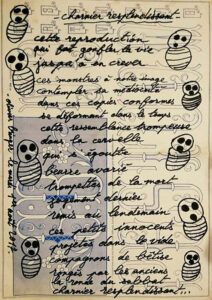 charnier resplendissant...
cette reproduction
qui fait gonfler la vie
jusqu'à en crever
ces monstres à notre image
contempler sa médiocrité
dans ces copies conformes
se déformant dans le temps
cette ressemblance trompeuse
dans la cervelle
qui s'égoutte
beurre avarié
trompettes de la mort
jugement dernier
remis au lendemain
ces petits innocents
projetés dans le vide
compagnons de bêtise
rongés par les anciens
la ronde du sabbat
charnier resplendissant...